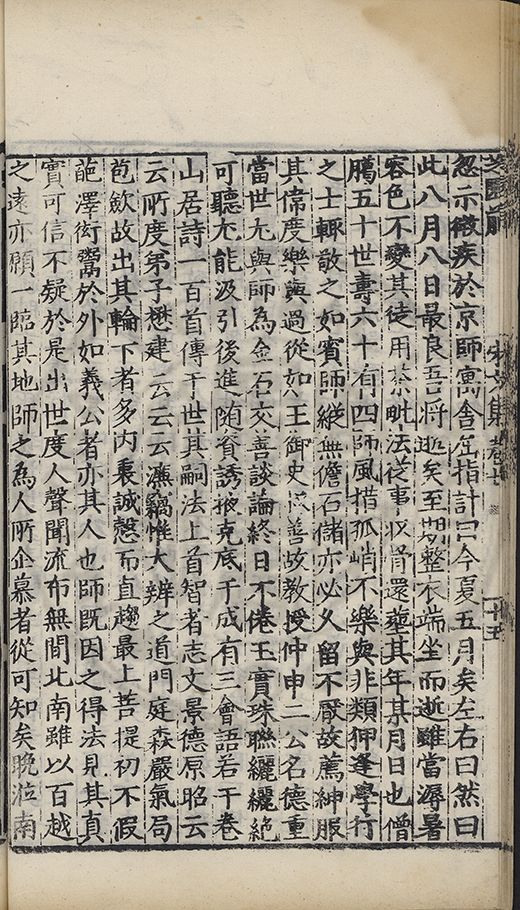 芝園前
宋文集 卷七
十五
忽示微疾於京師寓舍屈指計曰今夏五月矣左右曰然曰
此八月八日最良吾將逝矣至期整衣端坐而逝雖當溽暑
容色不變其徒用荼毗法從事收骨還塟其年某月日也僧
臈五十世壽六十有四師風措孤峭不樂與非類狎逢學行
之士輒敬之如賓師縱無儋石儲亦必久留不厭故薦紳服
其偉度樂與過從如王御史 善故教授仲申二公名德重
當世尤與師為金石交善談論終日不倦玉貫珠聯纚纚絶
可聽尤能汲引後進随資誘掖克底于成有三會語若干卷
山居詩一百首傳于世其嗣法上首智者志文景德原昭云
云所度弟子懋建云云云濂竊惟大辨之道門庭森嚴氣局
苞歛故出其輪下者多内裹誠慤而直趨最上菩提初不假
葩澤衒鬻於外如義公者亦其人也師既因之得法見其真
實可信不疑於是出世度人聲聞流布無間北南雖以百越
之遠亦願一臨其地師之為人所企慕者從可知矣晩涖南